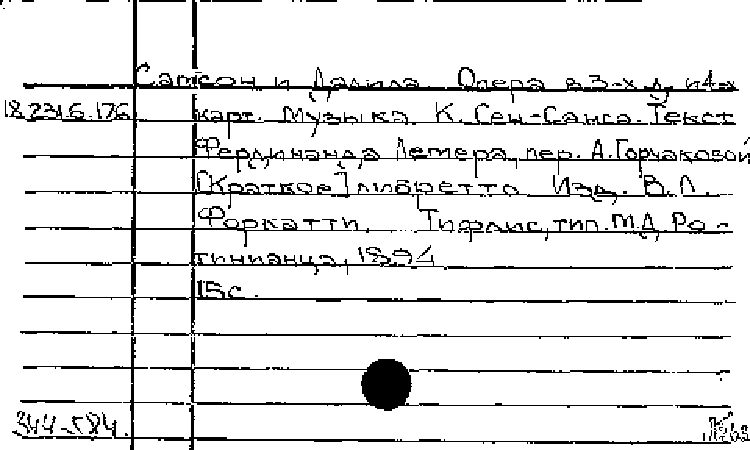 Самсон и Далила. Опера в 3-х д. и 4-х
18.231.6.176
карт. Музыка К. Сен-Санса. Текст
Фердинанда Лемера, пер. А. Горчаковой
[Краткое] либретто. Изд. В.Л.
Форкатти. Тифлис, тип. М.Д. Ро-
тинианца, 1894
15 с.
344-584.